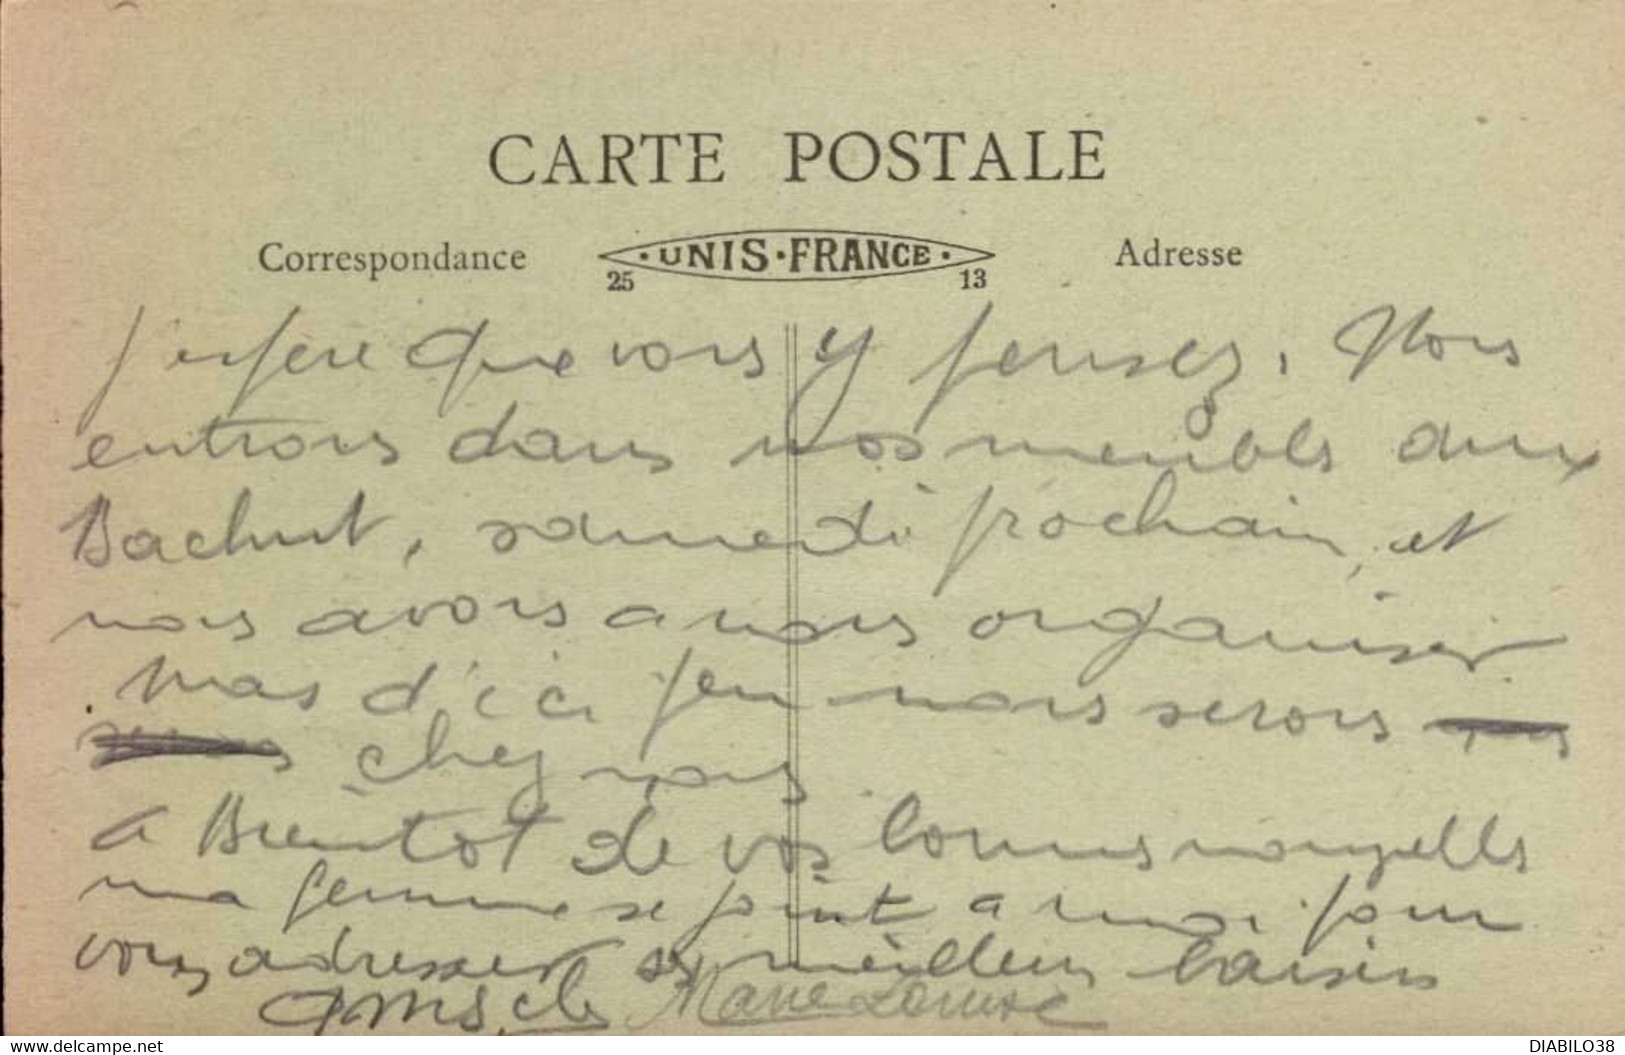 CARTE POSTALE
Correspondance
UNIS·FRANCE
25 13
Adresse
j'espere que vous y pensez, Nous
entrons dans nos meubles aux
Bachut, samedi prochain, et
nous avons a nous organiser
Mas d'ici peu nous serons
chez nous
a Bientot de vos bonnes nouvelles
ma femme se joint a moi pour
vous adresser nos meilleurs baisers
Marie Louise
www.delcampe.net
DIABILO38